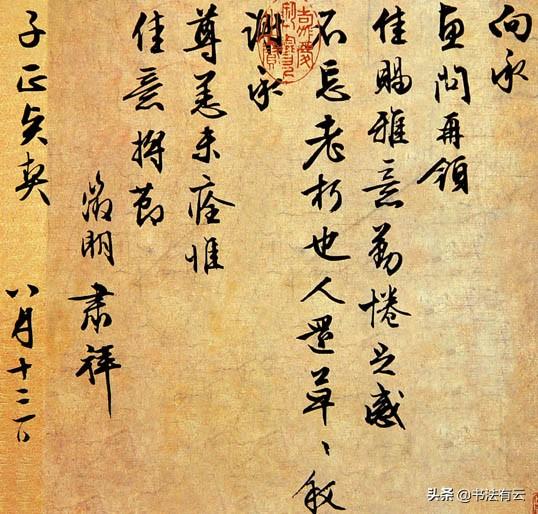 向承
惠問再領
佳賜雅意勤惓足感
不忘老朽也人還草〻
謝承
尊恙未痊惟
佳意撙節
徵明肅拜
子正契 八月十三日
头条 @书法有云